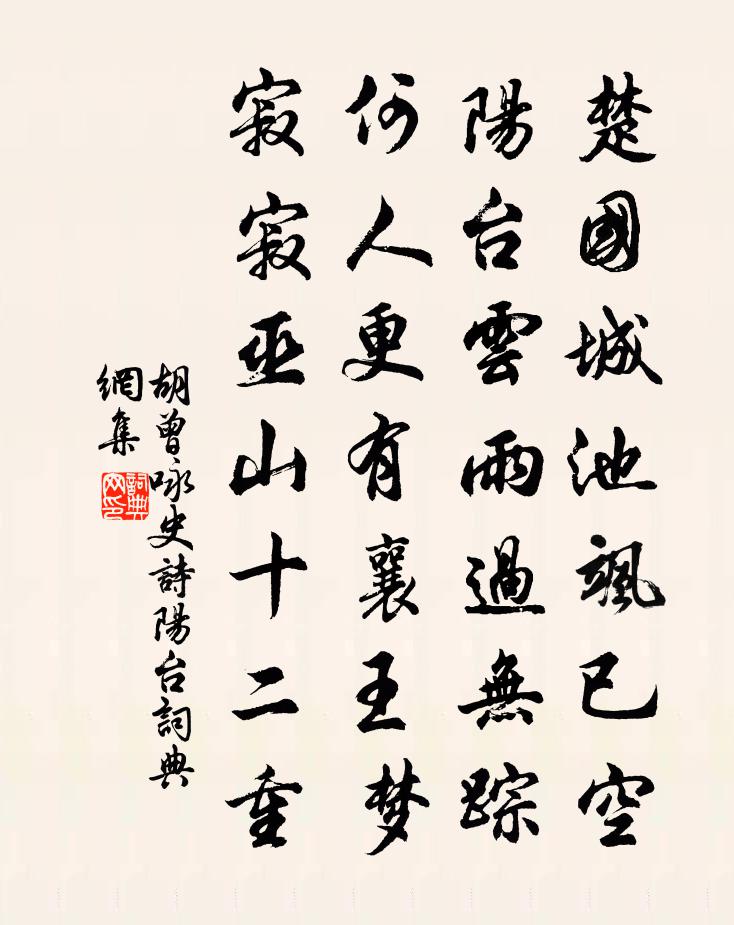 楚國城池颯已空
陽台雲雨過無踪
何人更有襄王梦
寂寂巫山十二重
胡曾詠史詩陽台詞典
網集
詞典
网印